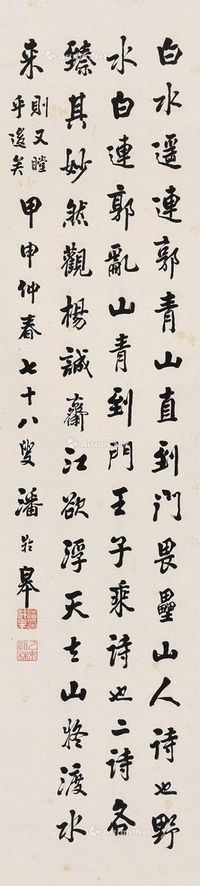 白水遥連郭青山直到門畏壘山人詩也野
水白連郭亂山青到門王子乘詩也二詩各
臻其妙然觀楊誠齋江欲浮天去山將渡水
來則又瞠乎後矣甲申仲春七十八叟潘齡皋